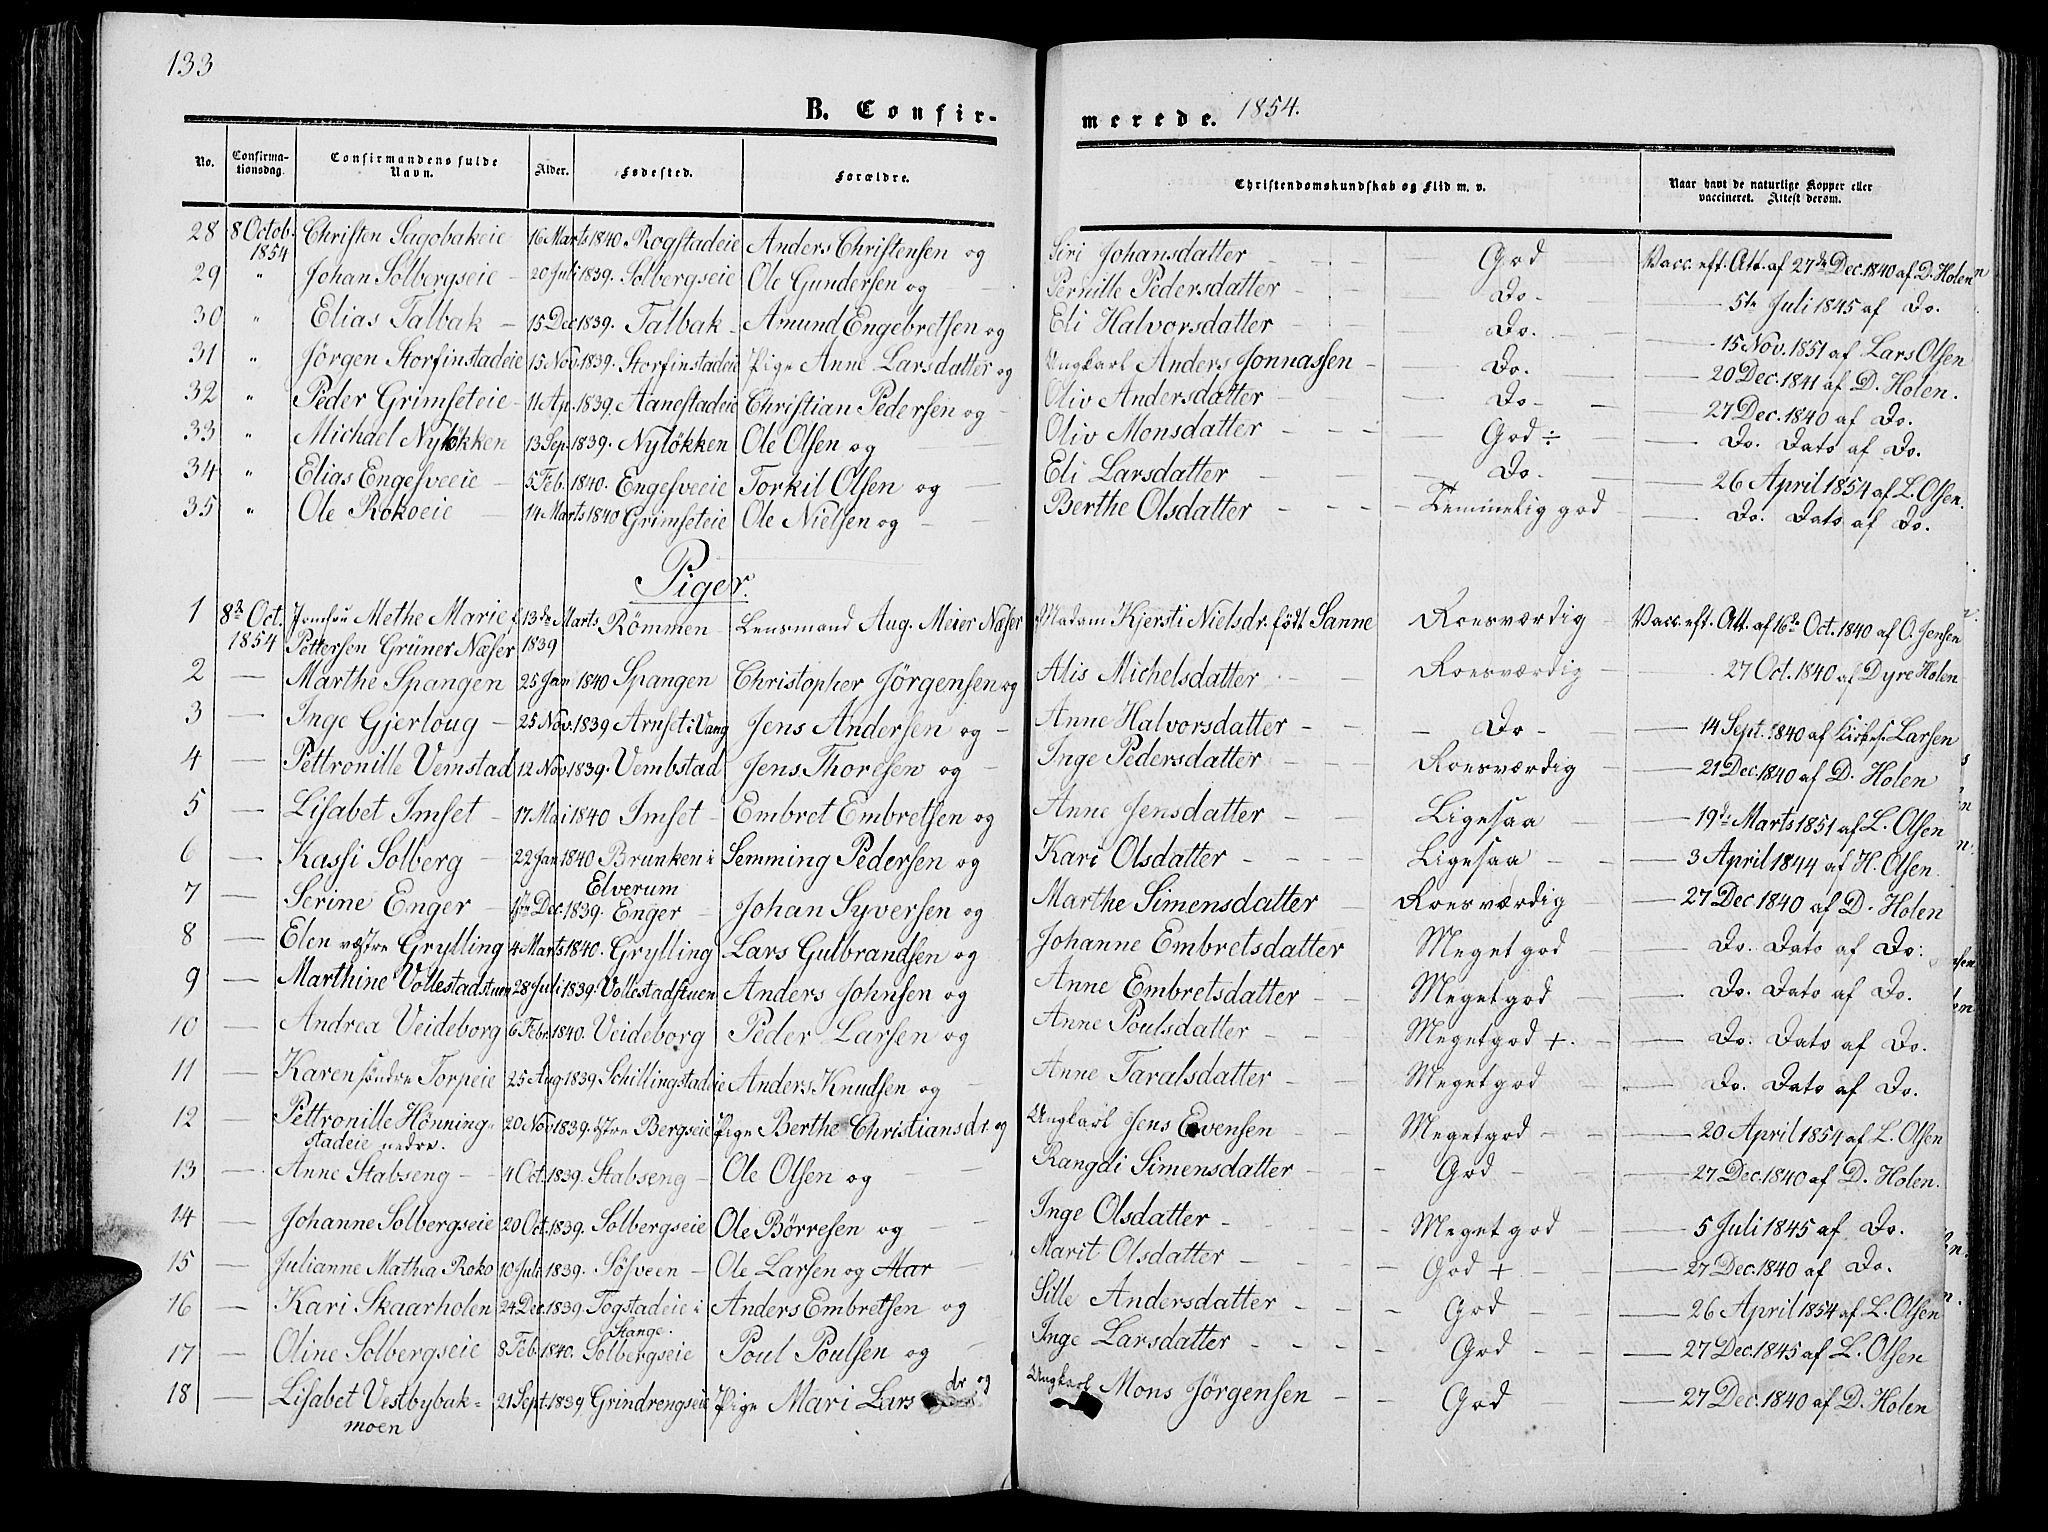 133
B. Confir-
merede. 1854.
No. Confirma-tionsdag. Confirmandens fulde Navn. Alder. Fødested. Forældre. Christendomskundskab og Flid m. v. Naar havt de naturlige Kopper eller vaccineret. Attest derom.
28 8 Octob. 1854 Christen Sagobakeie 16 Marts 1840 Rogstadeie Anders Christensen og Siri Johansdatter - God - Vacc. eft. Att. af 27de Dec. 1840 af D. Holen
29 " Johan Solbergseie - 20 Juli 1839. Solbergseie Ole Gundersen og - Pernille Pedersdatter - Do - 5te Juli 1845 af Do.
30 " Elias Talbak - 15 Dec 1839. Talbak - Amund Engebretsen og Eli Halvorsdatter - Do. - 15 Nov. 1851 af Lars Olsen
31 " Jørgen Storfinstadeie 15 Nov. 1839. Storfinstadeie Pige Anne Larsdatter og Ungkarl Anders Jonnassen - Do. - 20 Dec. 1841 af D. Holen.
32 " Peder Grimseteie - 11 Ap. 1839. Aanestadeie Christian Pedersen og - Oliv Andersdatter - Do - 27 Dec. 1840 af Do.
33 " Michael Nyløkken 13 Sep. 1839. Nyløkken Ole Olsen og Oliv Monsdatter - God ÷ - Do. Dato af Do.
34 " Elias Engesveeie - 5 Feb. 1840. Engesveeie Torkil Olsen og - Eli Larsdatter - Do. - 26 April 1854 af L. Olsen.
35 " Ole Rokoeie - 14 Marts 1840 Grimseteie Ole Nielsen og - Berthe Olsdatter - Temmelig god - Do. Dato af Do.
Piger.
1 8de Oct. 1854 Jomfru Methe Marie f. Pettersen Grüner Næser 13de Marts 1839 Rømmen - Lensmand Aug. Meier Næser Madam Kjersti Nielsdr. født Sanne Roesværdig - Vacc. eft. Att. af 16de Oct. 1840 af O. Jensen
2 - Marthe Spangen 25 Jan 1840 Spangen Christopher Jørgensen og Alis Michelsdatter - Roesværdig - 27 Oct. 1840 af Dyre Holen
3 - Inge Gjerloug - 25 Nov. 1839 Arnset i Vang Jens Andersen og - Anne Halvorsdatter - Do - 14 Sept. 1840 af Kirkes. Larsen
4 - Pettronille Vemstad 12 Nov. 1839. Vembstad Jens Thoresen og - Inge Pedersdatter - Roesværdig - 21 Dec. 1840 af D. Holen
5 - Lisabet Imset - 17 Mai 1840 Imset - Embret Embretsen og Anne Jensdatter - Ligesaa - 19de Marts 1851 af L. Olsen
6 - Kassi Solberg - 22 Jan 1840 Brunken i Elverum Semming Pedersen og Kari Olsdatter - Ligesaa - 3 April 1844 af H. Olsen.
7 - Serine Enger - Dec. 1839. Enger - Johan Syversen og Marthe Simensdatter - Roesværdig - 27 Dec 1840 af D. Holen
8 - Elen vestre Grylling 4 Marts 1840. Grylling Lars Gulbrandsen og Johanne Embretsdatter Meget god - Do. Dato af Do.
9 - Marthine Vollestadstuen 28 Juli 1839. Vollestadstuen Anders Johnsen og Anne Embretsdatter - Meget god - Do. Dato af Do.
10 - Andrea Veideborg 6 Febr. 1840. Veideborg Peder Larsen og Anne Poulsdatter - Meget god +. - Do. Dato af Do.
11 - Karen søndre Torpeie 25 Aug 1839 Schillingstadeie Anders Knudsen og - Anne Taralsdatter - Meget god - Do. Dato af Do.
12 - Pettronille Hønning-stadeie nedre. 20 Nov 1839. østre Bergseie Pige Berthe Christiansdr. og Ungkarl Jens Evensen - Meget god - 20 April 1854 af L. Olsen
13 - Anne Stabseng - 4 Oct. 1839. Stabseng - Ole Olsen og - Rangdi Simensdatter - God - 27 Dec. 1840 af D. Holen.
14 - Johanne Solbergseie 20 Oct. 1839. Solbergseie Ole Børresen og - Inge Olsdatter - Meget god - 5 Juli 1845 af Do.
15 - Julianne Mathea Roko 10 Juli 1839. Søsveen - Ole Larsen og Mar Marit Olsdatter - God + - 27 Dec. 1840 af Do.
16 - Kari Skaarholen 24 Dec. 1839. Togstadeie i Stange. Anders Embretsen og Sille Andersdatter - God - 26 April 1854 af L. Olsen
17 - Oline Solbergseie 8 Feb. 1840. Solbergseie Poul Poulsen og - Inge Larsdatter - God - 27 Dec. 1845 af L. Olsen
18 - Lisabet Vestbybak-moen 21 Sept. 1839 Grindrengseie Pige Mari Lars dr og Ungkarl Mons Jørgensen - God - 27 Dec. 1840 af D. Holen